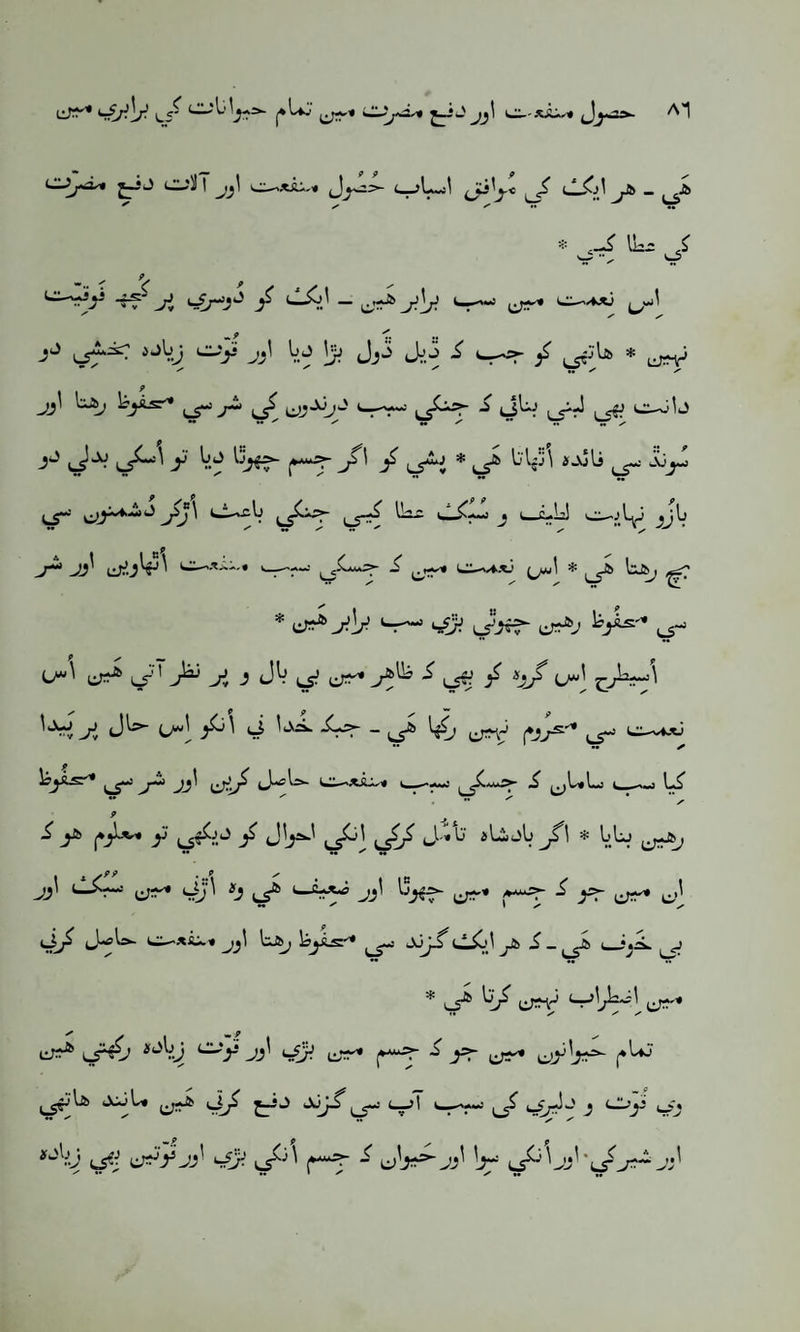 ٨٦ حصول منفعت اور دفع مضرت میں تمام حیوانات کی برابری میں
هی - هر ایک کی موافق اسباب حصول منفعت اور آلات دفع مضرت
کی عطا کیی *
اس نعمت میں سب برابر هیں - ایک کو دوسری پر کچھ فوقیت
نہیں * هاتھی کو جب کہ ڈیل ڈول بڑا دیا اور قوت زیادہ بخشی دو
دانت بھی لنبی بنائی کہ جنکی سبب درندوں کی شر سی محفوظ رهتا اور
سونڈ سی فائدہ اٹھاتا هی * پشی کو اگر جسم چھوٹا دیا تو اسکی بدلی دو
بازو نہایت لطیف و سبک عطا کیی جنکی باعث اڑکر دشمنوں سی
بچ رهتا هی * اس نعمت میں کہ جسکی سبب منفعت اٹھاویں اور شر
سی محفوظ رهیں چھوٹی بڑی سب برابر هیں *
اسیطرح اس گروہ کو بھی کہ ظاهر میں بی بال و پر نظر آتی هیں اس
نعمت سی محروم نہیں رکھا هی - جبکہ خدا نی انکو اس حال پر پیدا
کیا سب سامان کہ جسکی سبب منفعت حاصل کریں اور شر سی محفوظ
رهیں بنایا * اگر بادشاہ تامل کرکی انکی احوال کو دیکھی تو معلوم هو کہ
ان میں جو کہ جسم میں چھوٹا اور ضعیف هی وہ اڑنی میں سبک اور
بی خوف هی - کہ هر ایک گزند سی محفوظ رهتا اور منفعت حاصل کرنی
میں اضطراب نہیں کرتا هی *
تمام حیوانوں میں جو کہ جسم میں بڑی اور قوت زیادہ رکھتی هیں
وی قوت و دلیری کی سبب آپ سی گزند دفع کرتی هیں مانند هاتھی
اور شیر کی اور انکی سوا اور حیوان کہ جسم انکی بڑی اور قوتیں بھی زیادہ